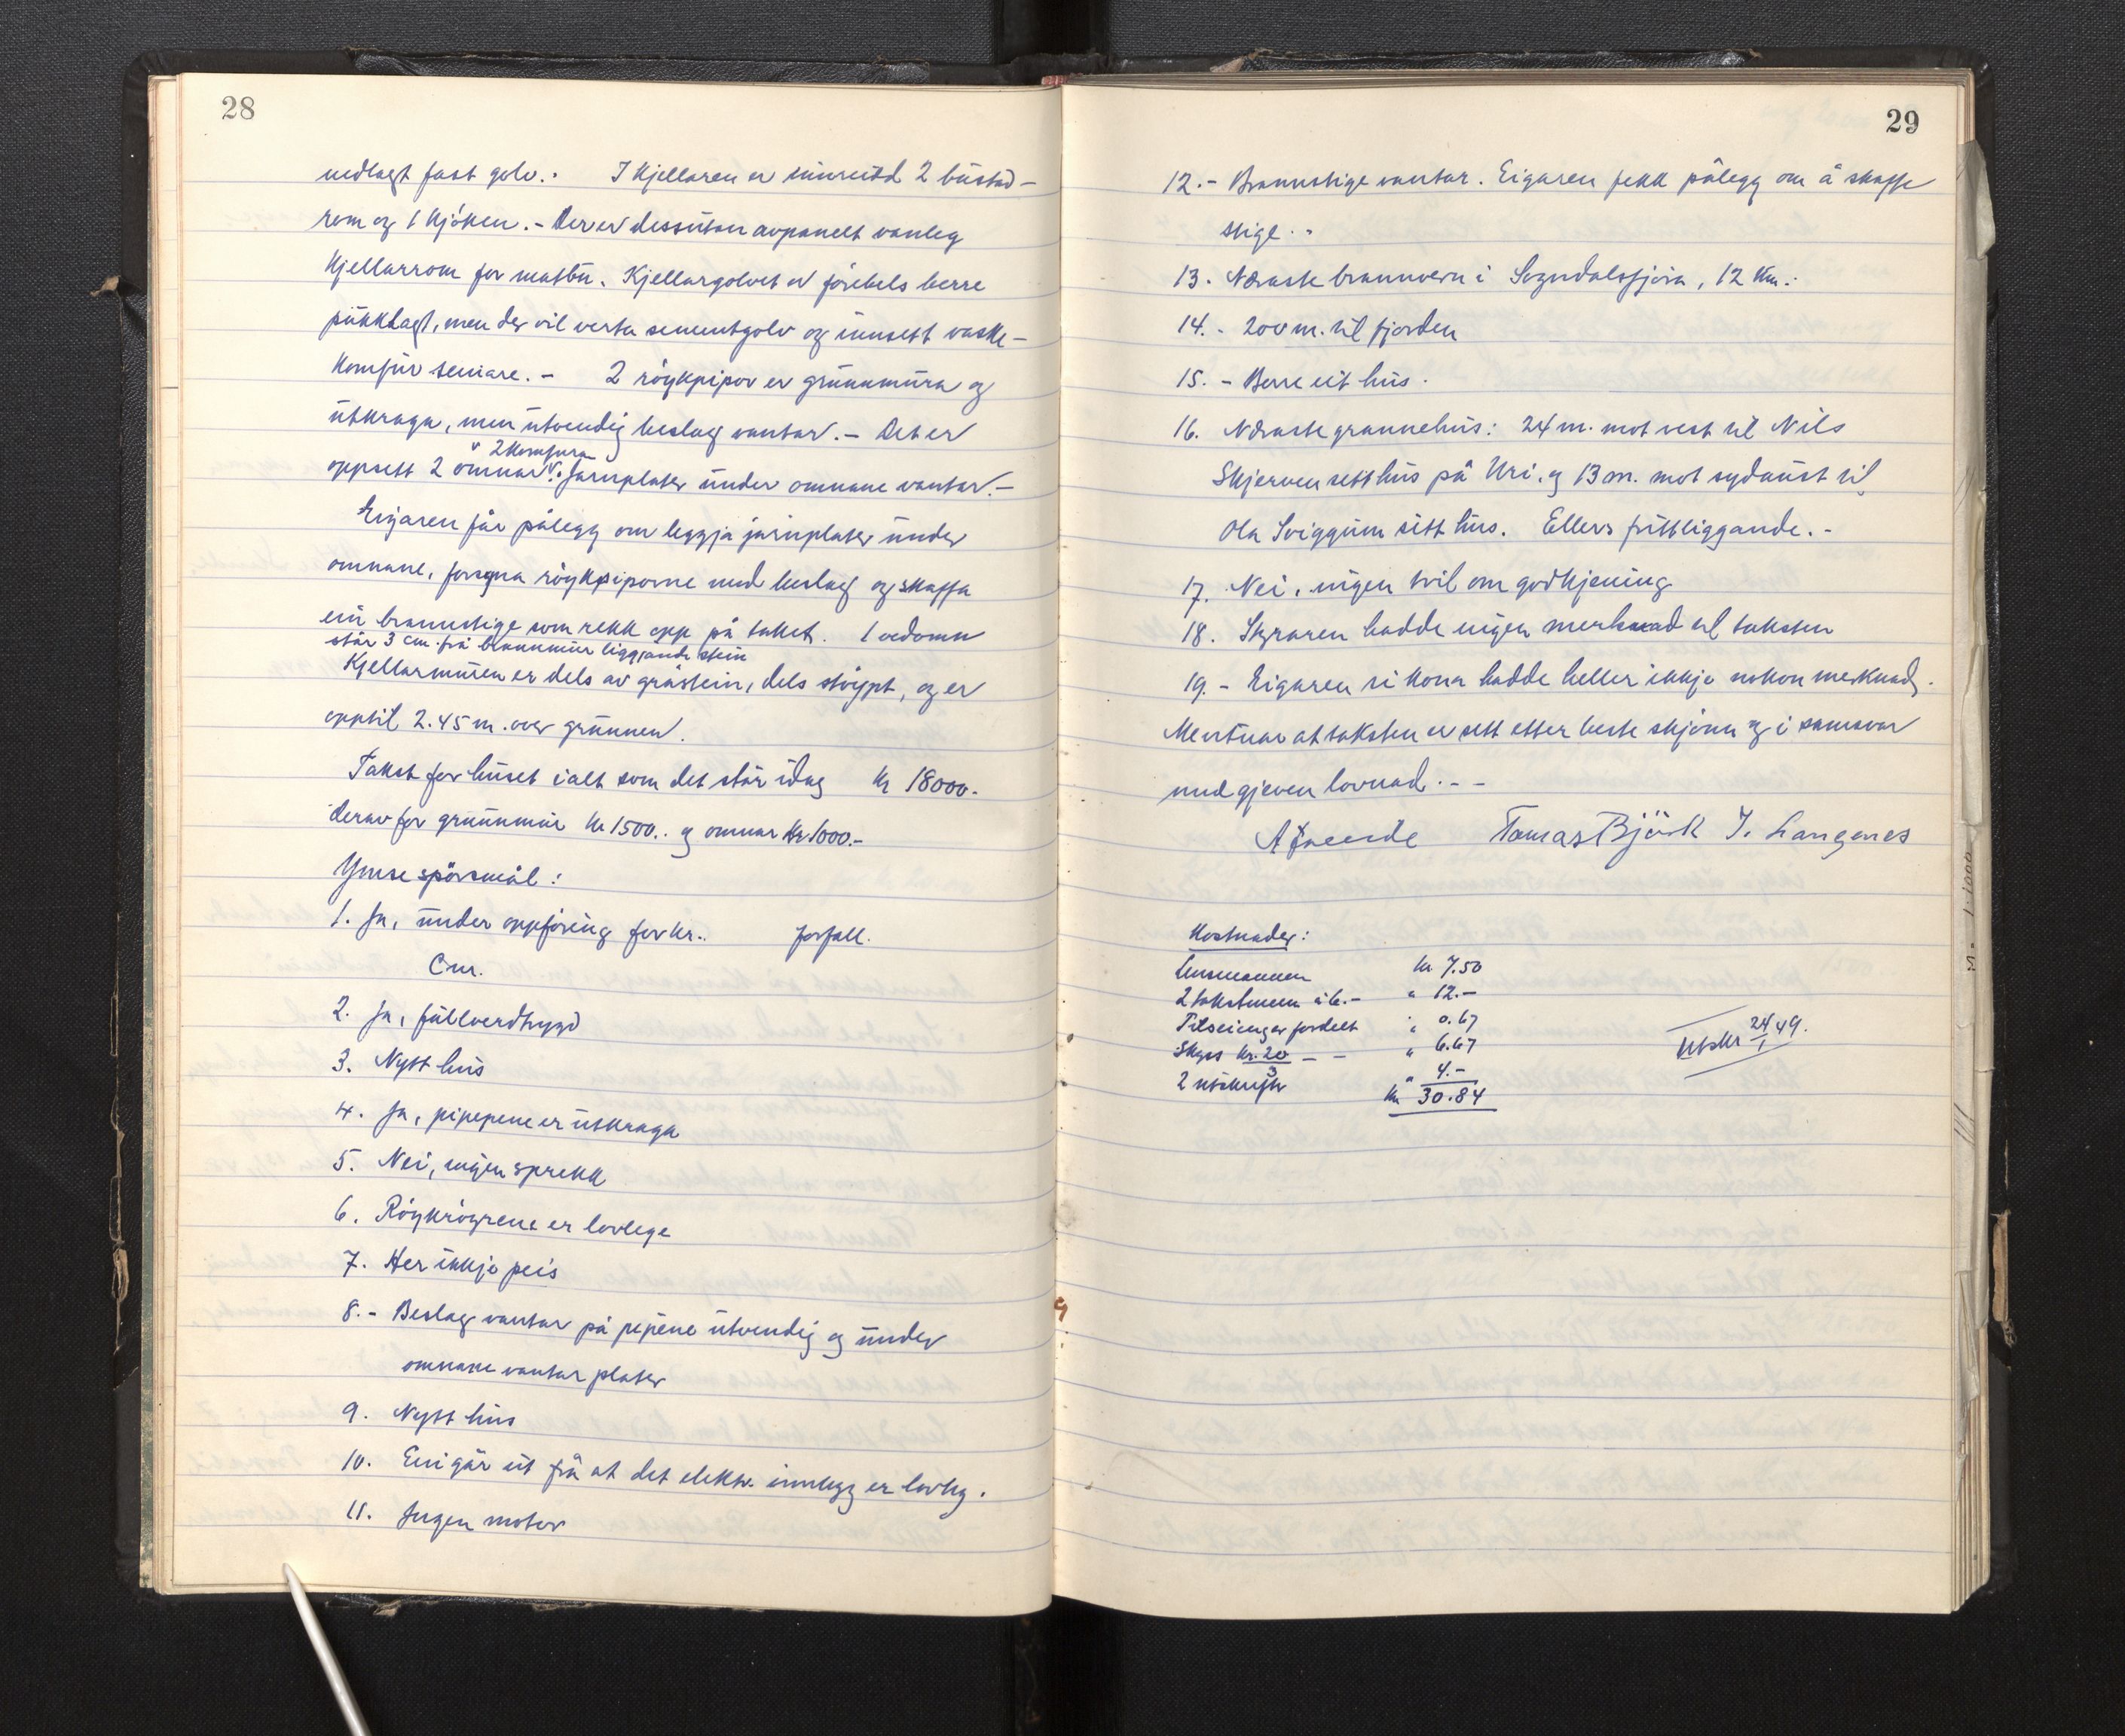 28
nedlagt fast golv.. I kjellaren er innreidd 2 bustad-
rom og 1 kjöken. - Der er dessutan avpanelt vanleg
kjellarrom for matbu. Kjellargolvet er förebels berre
pukklagt, men der vil verta sementgolv og innsett vaske-
komfur seinare. - 2 röykpipor er grunnmura og
utkraga, men utvendig beslag vantar. - Det er
" 2 komfura
oppsett 2 omnar. Jarnplater under omnane vantar. -
Eigaren får pålegg om leggja jarnplater under
omnane, forsyna röykpiporne med beslag og skaffa
ein brannstige som rekk opp på taket. 1 vedomn
står 3 cm. frå brannmur liggjande stein
Kjellarmuren er dels av gråstein, dels stöypt, og er
opptil 2.45 m. over grunnen.
Takst for huset ialt som det står idag kr 18000.-
derav for grunnmur kr 1500.. og omnar kr. 1000.-
Ymse spörsmål :
1. Ja, under oppföring for kr.. forfall.
2. Ja, fullverdtrygd
3. Nytt hus
4. Ja, pipepene er utkraga
5. Nei, ingen sprekk
6. Röykröyrene er lovlege
7. Her ikkje peis
8. - Beslag vantar på pipene utvendig og under
omnane vantar plater
9. Nytt hus
10. Ein går ut frå at det elektr. innlegg er lovleg.
11. Ingen motor
29
12. - Brannstige vantar. Eigaren fekk pålegg om å skaffe
stige . -
13. Næraste brannvern i Sogndalsfjöra, 12 km.:
14. - 200 m. til fjorden
15. - Berre eit hus.
16. Næraste grannehus: 24 m. mot vest til Nils
Skjerven sitt hus på Uri. og 13 m. mot sydaust til
Ola Sviggum sitt hus. Ellers frittliggande. -
17. Nei, ingen tvil om godkjening
18. Skyraren hadde ingen merknad til taksten
19. - Eigaren si kona hadde heller ikkje nokon merknad.
Me vitnar at taksten er sett etter beste skjönn og i samsvar
med gjeven lovnad. - -
Tomas Björk I. Langenes
Kostnader:
Lensmannen kr 7.50
2 takstmenn à 6.- " 12.-
Tilseiingar fordelt " 0.67
Skyss kr. 20/3 - - " 6.67
2 utskrifter " 4.-
kr 30.84
Utskr 24/1 49.